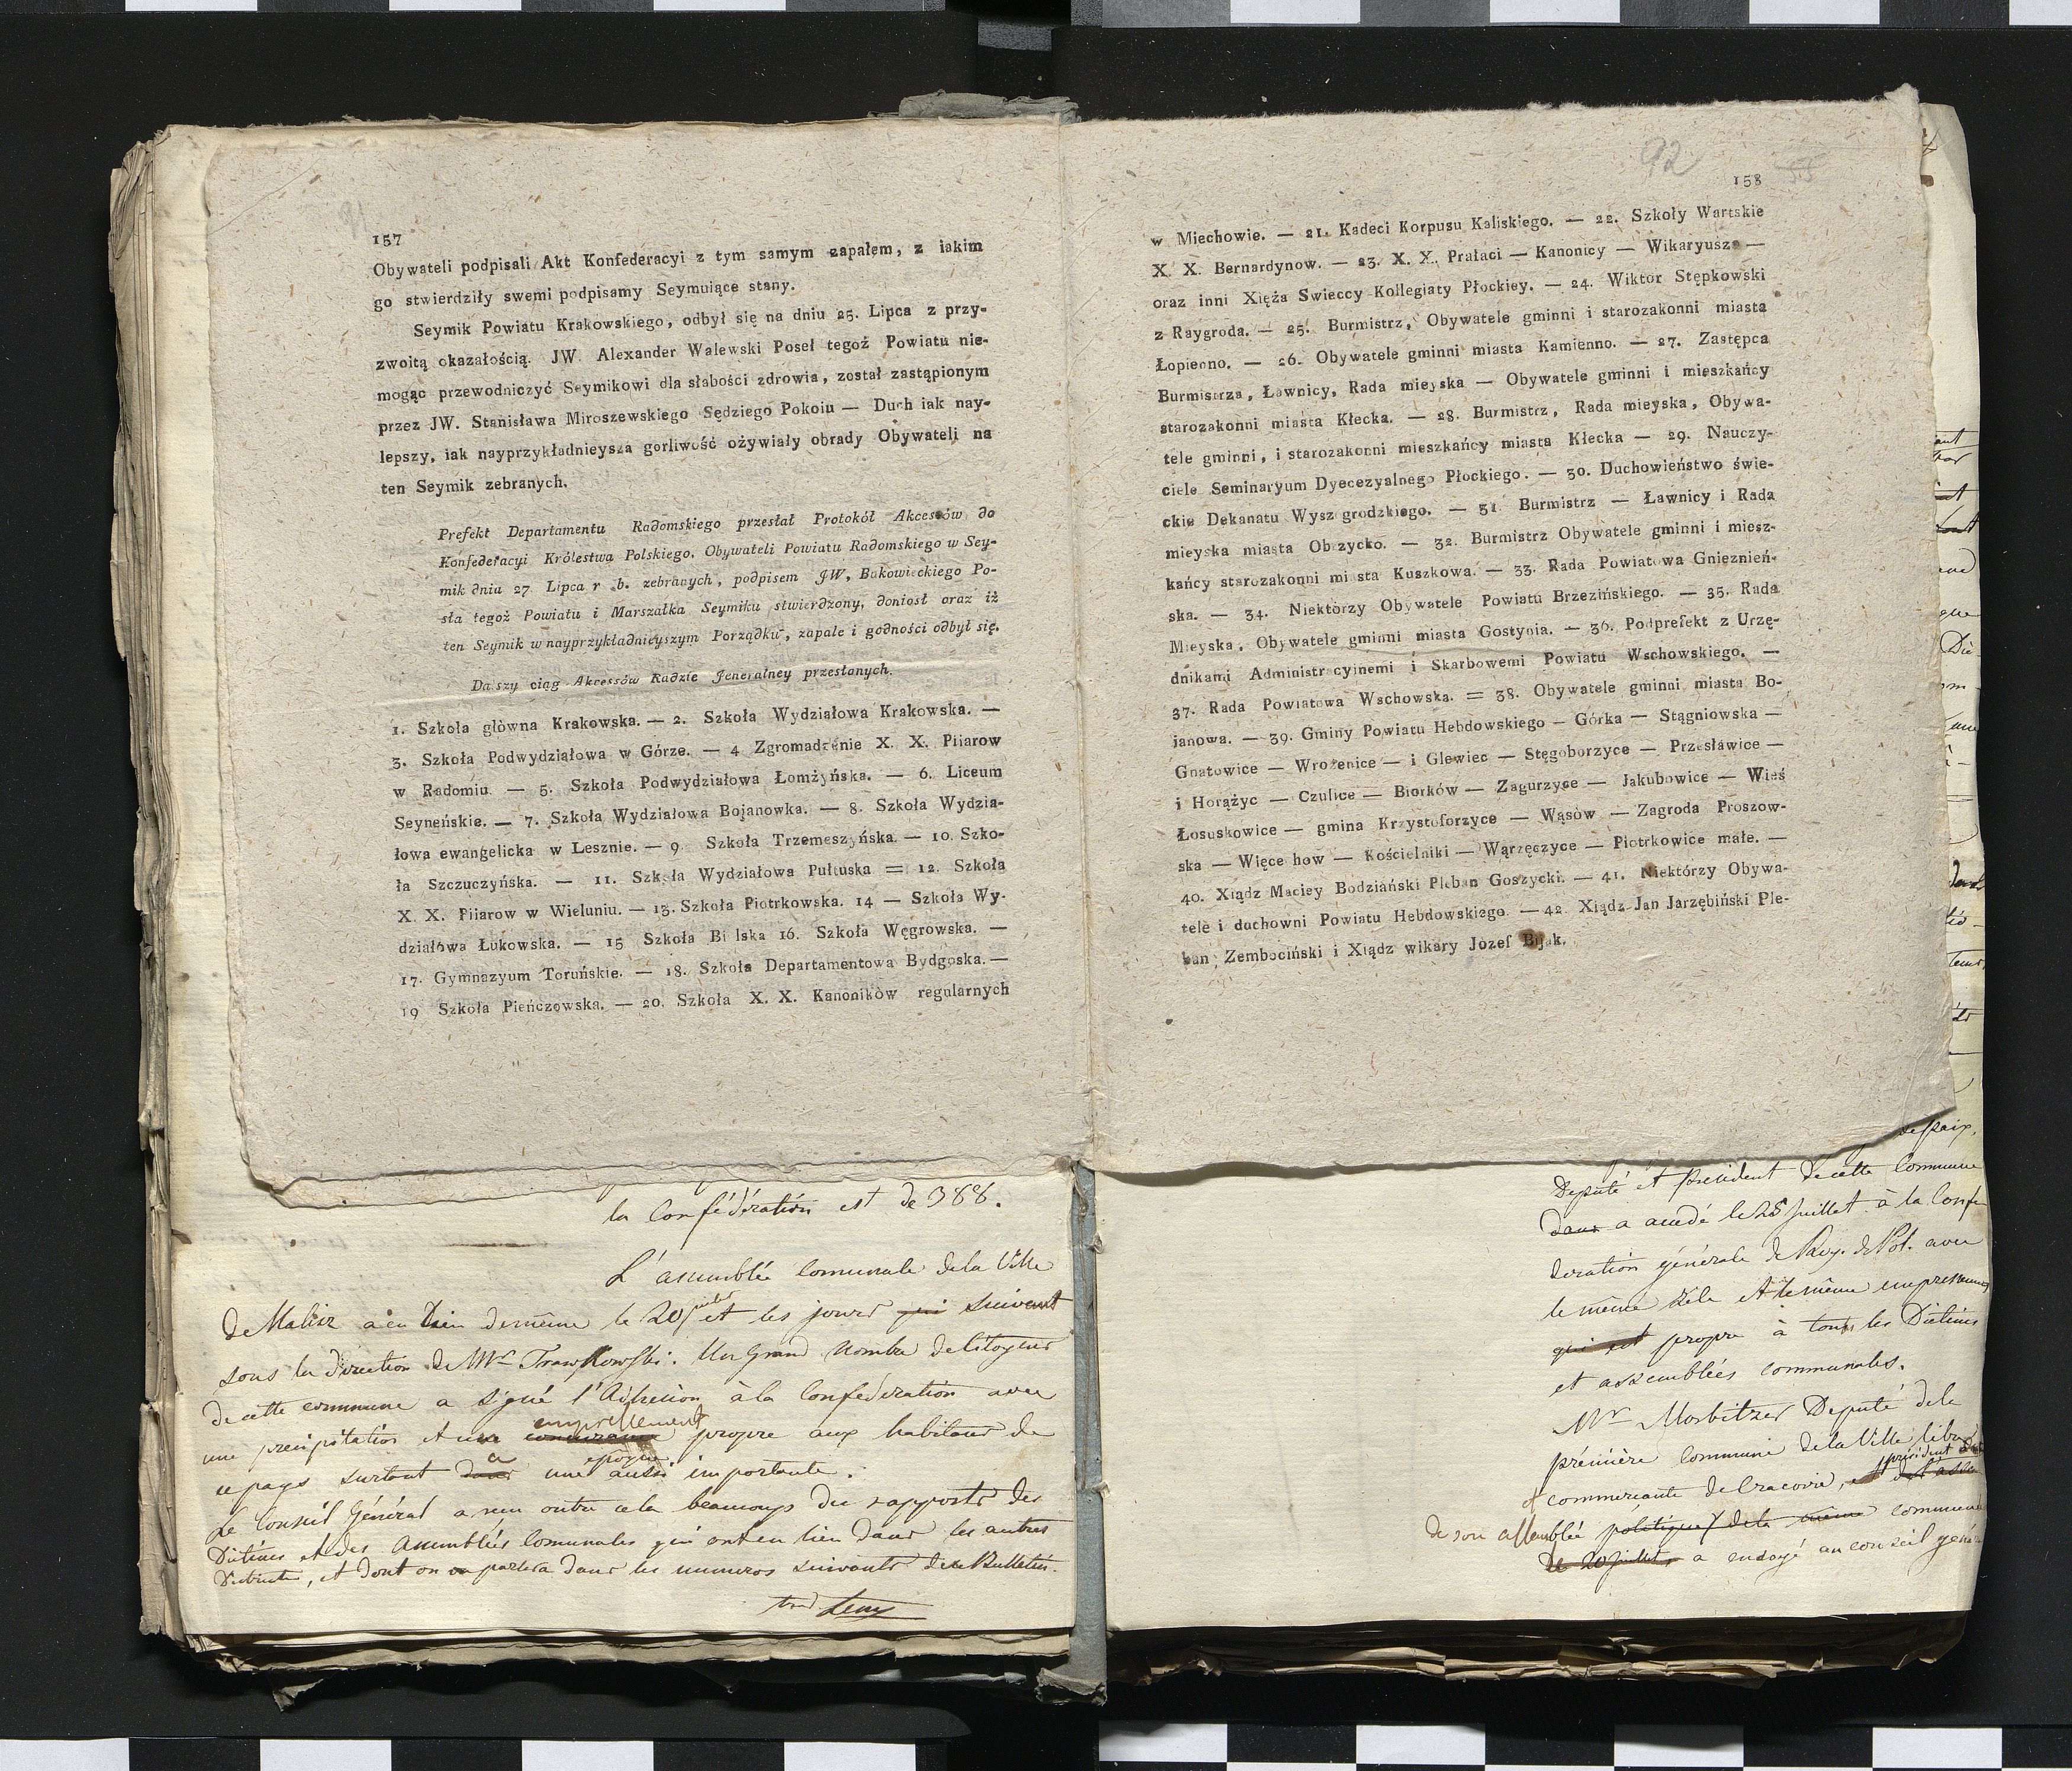 157
Obywateli podpisali Akt Konfederacyi z tym samym zapałem, z iakim
go stwierdziły swemi podpisamy Seymuiące stany.
Seymik Powiatu Krakowskiego, odbył się na dniu 25. Lipca z przy-
zwoitą okazałością. JW. Alexander Walewski Poseł tegoż Powiatu nie-
mogąc przewodniczyć Seymikowi dla słabości zdrowia, został zastąpionym
przez JW. Stanisława Miroszewskiego Sędziego Pokoiu — Duch iak nay-
lepszy, iak nayprzykładnieysza gorliwość ożywiały obrady Obywateli na
ten Seymik zebranych.
Prefekt Departamentu Radomskiego przesłał Protokół Akcessów do
Konfederacyi Królestwa Polskiego, Obywateli Powiatu Radomskiego w Sey-
mik dniu 27 Lipca r. b. zebranych, podpisem JW. Bukowieckiego Po-
sła tegoż Powiatu i Marszałka Seymiku stwierdzony, doniosł oraz iż
ten Seymik w nayprzykładnieyszym Porządku, zapale i godności odbył się.
Dalszy ciąg Akcessów Radzie Jeneralney przesłanych.
1. Szkoła główna Krakowska. — 2. Szkoła Wydziałowa Krakowska. —
3. Szkoła Podwydziałowa w Górze. — 4 Zgromadzenie X. X. Piiarow
w Radomiu — 5. Szkoła Podwydziałowa Łomżyńska. — 6. Liceum
Seyneńskie. — 7. Szkoła Wydziałowa Bojanowka. — 8. Szkoła Wydzia-
łowa ewangelicka w Lesznie. — 9 Szkoła Trzemeszyńska. — 10. Szko-
ła Szczuczyńska. — 11. Szkoła Wydziałowa Pułtuska = 12. Szkoła
X. X. Piiarow w Wieluniu. — 13. Szkoła Piotrkowska. 14 — Szkoła Wy-
działowa Łukowska. — 15 Szkoła Bi lska 16. Szkoła Węgrowska. —
17. Gymnazyum Toruńskie. — 18. Szkoła Departamentowa Bydgoska. —
19 Szkoła Pieńczowska. — 20. Szkoła X. X. Kanoników regularnych
la Confédération est de 388.
L'assemblée Communale de la Ville
de Kalisz a eu lieu de même le 20 juillet et les jours qui suivant
sous la direction de Mr Trawkowski. Un Grand Nombre de Citoyens
de cette commune a signé l'Adhesion à la Confédération avec
une precipitation et un empressement propre aux habitans de
ce pays surtout dans a une epoque aussi importante.
Le Conseil Général a reçu outre cela beaucoup des rapports des
Diétines et des Assemblées Communales qui ont eu lieu dans les autres
Districts, et dont on parlera dans les numeros suivants de ce Bulletin.
92
158
w Miechowie. — 21. Kadeci Korpusu Kaliskiego. — 22. Szkoły Wartskie
X. X. Bernardynow. — 23. X. X. Prałaci — Kanonicy — Wikaryusze —
oraz inni Xięża Swieccy Kollegiaty Płockiey. — 24. Wiktor Stępkowski
z Raygroda. — 25. Burmistrz, Obywatele gminni i starozakonni miasta
Łopienno. — 26. Obywatele gminni miasta Kamienno. — 27. Zastępca
Burmistrza, Ławnicy, Rada mieyska — Obywatele gminni i mieszkańcy
starozakonni miasta Kłecka. — 28. Burmistrz, Rada mieyska, Obywa-
tele gminni, i starozakonni mieszkańcy miasta Kłecka — 29. Nauczy-
ciele Seminaryum Dyecezyalnego Płockiego. — 30. Duchowieństwo świe-
ckie Dekanatu Wyszogrodzkiego. — 31. Burmistrz — Ławnicy i Rada
mieyska miasta Obrzycko. — 32. Burmistrz Obywatele gminni i miesz-
kańcy starozakonni miasta Kuszkowa. — 33. Rada Powiatowa Gnieznień-
ska. — 34. Niektórzy Obywatele Powiatu Brzezińskiego. — 35. Rada
Mieyska, Obywatele gminni miasta Gostynia. — 36. Podprefekt z Urzę-
dnikami Administracyinemi i Skarbowemi Powiatu Wschowskiego. —
37. Rada Powiatowa Wschowska. = 38. Obywatele gminni miasta Bo-
janowa. — 39. Gminy Powiatu Hebdowskiego — Górka — Stągniowska —
Gnatowice — Wrożenice — i Glewiec — Stęgoborzyce — Przesławice —
i Horążyc — Czulice — Biorków — Zagurzyce — Jakubowice — Wieś
Łosuskowice — gmina Krzysztoforzyce — Wąsów — Zagroda Proszow-
ska — Więce how — Kościelniki — Wąrzęczyce — Piotrkowice małe. —
40. Xiądz Maciey Bodziański Pleban Goszycki. — 41. Niektórzy Obywa-
tele i duchowni Powiatu Hebdowskiego. — 42. Xiądz Jan Jarzębiński Ple-
ban Zembociński i Xiądz wikary Józef Bijak.
Deputé et President de cette Commune
dans a accedé le 28 juillet à la Confe
deration générale de Roy. de Pol. avec
le même zèle et le même empressement
qui est propre à touts les Diétines
et assemblées communales.
Mr Morbitzer Deputé de la
première commune de la Ville libre
commercante de Cracovie, et président
de son assemblée politique de la même commune
le 20 juillet, a envoyé au conseil géné